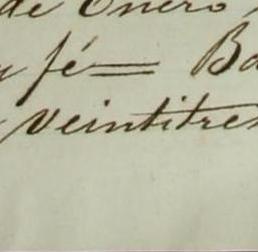 de Enero
y fé= Ba
veintitres